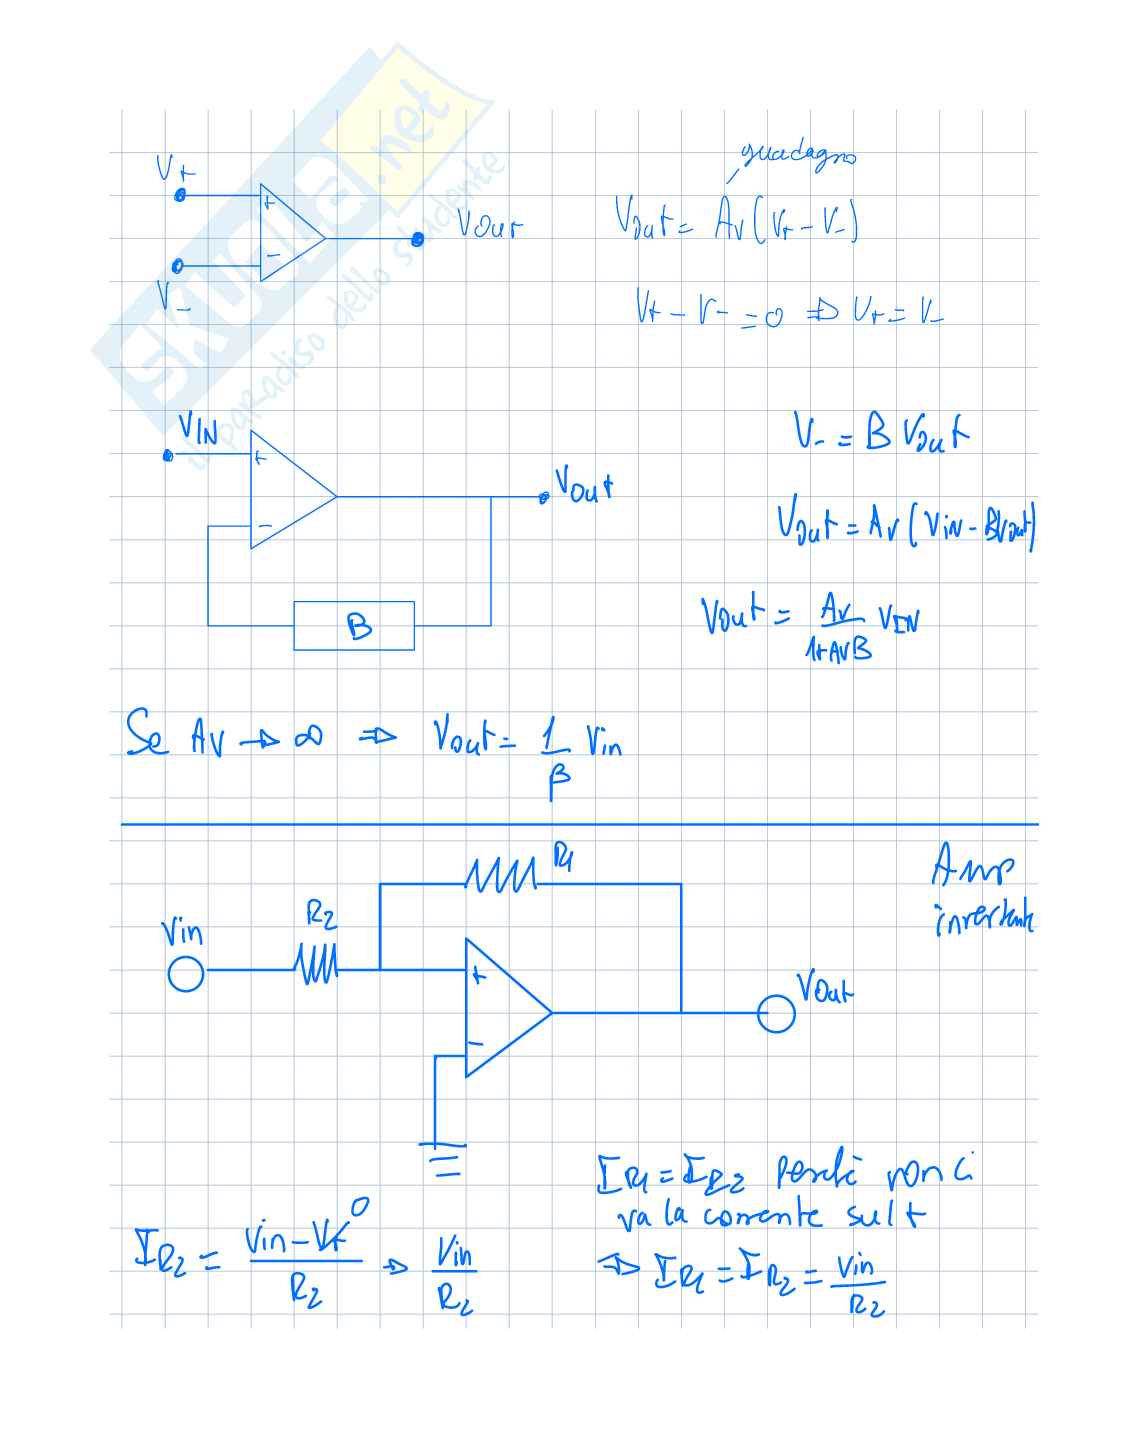 SKUOLA.net
il paradiso dello studente
V+
+
-
V-
Vout
guadagno
Vout = Av (V+ - V-)
V+ - V- = 0 ⇒ V+ = V-
VIN
+
-
Vout
B
V- = B Vout
Vout = Av (Vin - BVout)
Vout = Av/1+AvB VIN
Se Av → ∞ ⇒ Vout = 1/β Vin
Amp
invertente
R1
R2
Vin
+
-
Vout
IR1 = IR2 perché non ci
va la corrente sul +
IR2 = Vin - V+ 0/R2 → Vin/R2
⇒ IR1 = IR2 = Vin/R2